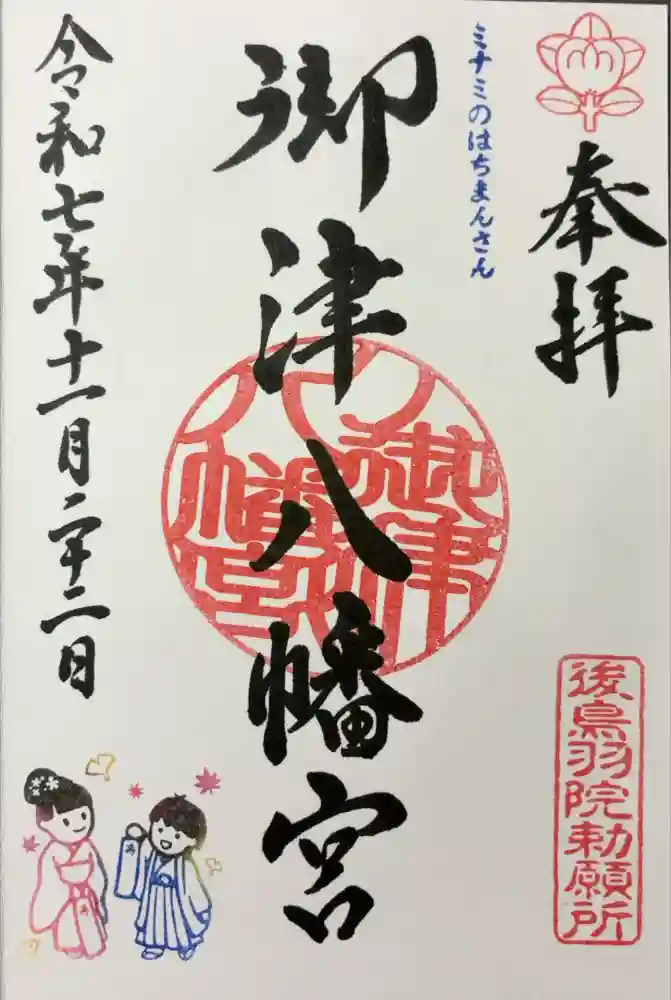 奉拝
ミナミのはちまんさん
御津八幡宮
御津八幡宮
後鳥羽院勅願所
令和七年十一月二十二日